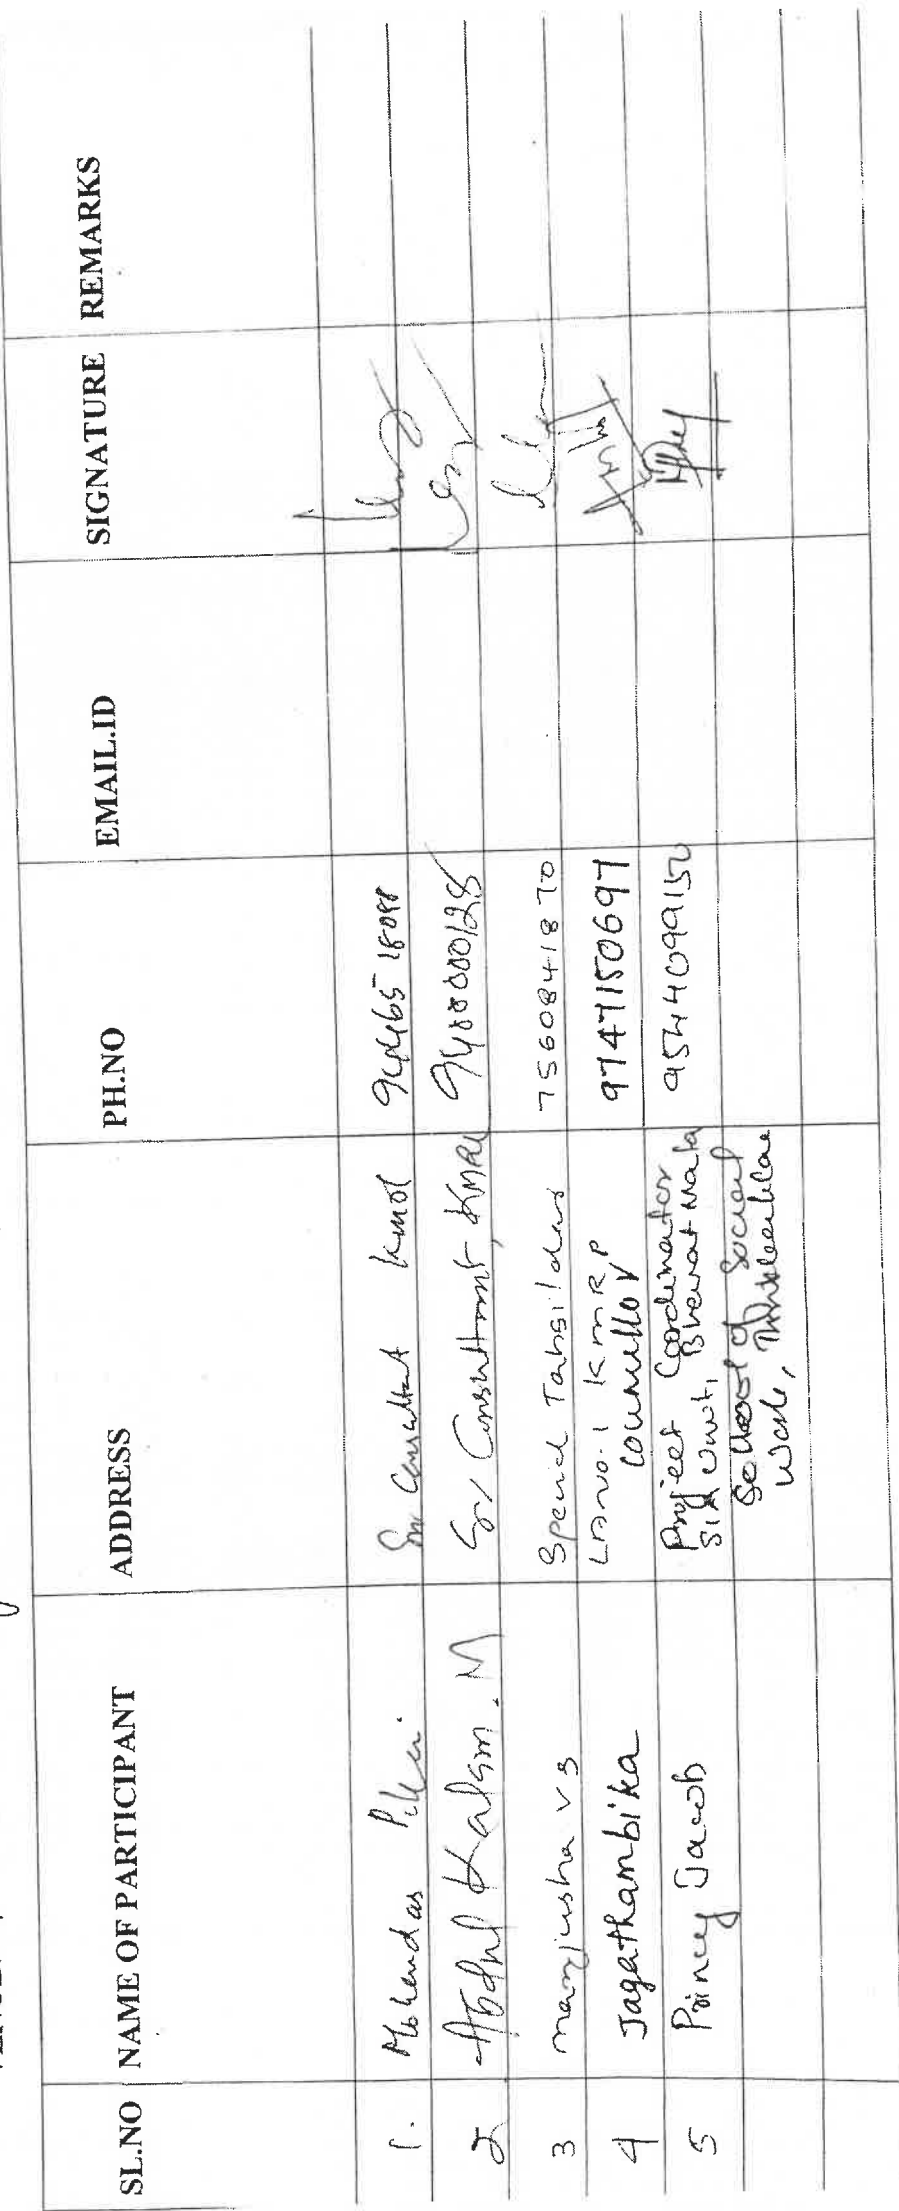 SL.NO NAME OF PARTICIPANT ADDRESS PH.NO EMAIL.ID SIGNATURE REMARKS
1. Mohandas Sr. Consultant KMRL 94465 18098
2 Abdul Kalam . M Sr, Consultant, KMRL 9400000128
3 Manjusha VS Special Tahsildar 7560841870
4 Jagathambika KMRP 9747150697
Councillor
5 Princy Jacob Project Coordinator 9544099150
SIA Unit, Bharat Mata
School of Social
Work, Thrikkakkara